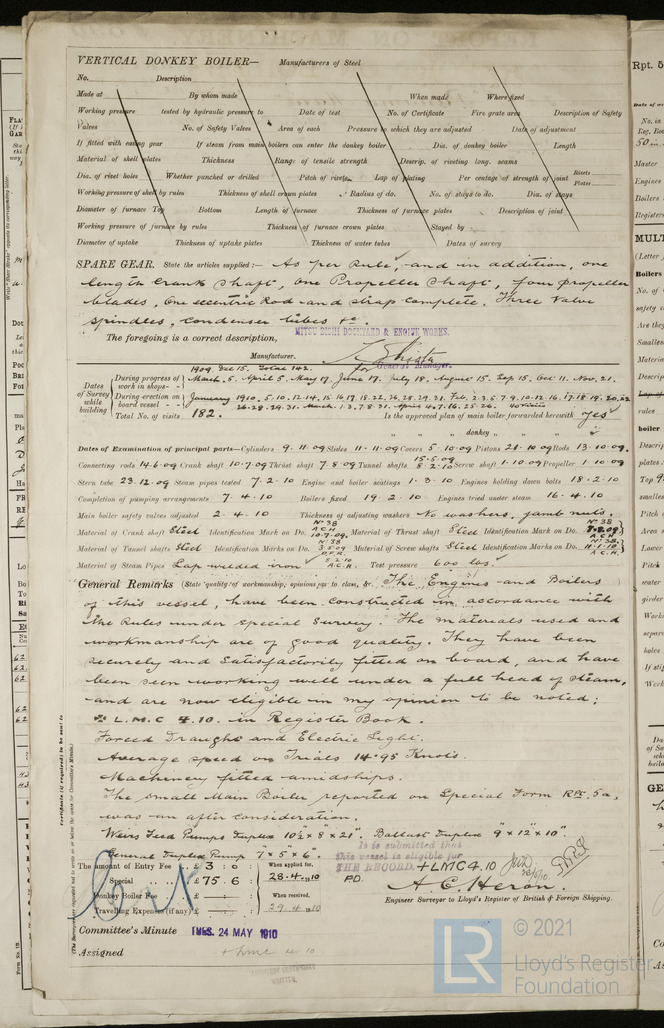 VERTICAL DONKEY BOILER— Manufacturers of Steel
No. Description
Made at By whom made When made Where fixed
Working pressure tested by hydraulic pressure to Date of test No. of Certificate Fire grate area Description of Safety
Valves No. of Safety Valves Area of each Pressure to which they are adjusted Date of adjustment
If fitted with easing gear If steam from main boilers can enter the donkey boiler Dia. of donkey boiler Length
Material of shell plates Thickness Range of tensile strength Descrip. of riveting long. seams
Dia. of rivet holes Whether punched or drilled Pitch of rivets Lap of plating Per centage of strength of joint Rivets Plates
Working pressure of shell by rules Thickness of shell crown plates Radius of do. No. of stays to do. Dia. of stays
Diameter of furnace Top Bottom Length of furnace Thickness of furnace plates Description of joint
Working pressure of furnace by rules Thickness of furnace crown plates Stayed by
Diameter of uptake Thickness of uptake plates Thickness of water tubes Dates of survey
SPARE GEAR. State the articles supplied:— As per Rule, and in addition, one
length Crank Shaft, one Propeller Shaft, four propeller
blades, One eccentric Rod and strap complete, Three Valve
spindles, condenser tubes &c.
The foregoing is a correct description,
MITSU BISHI DOCKYARD & ENGINE WORKS.
Manufacturer. for General Manager.
Dates of Survey while building
During progress of work in shops - - 1909. Dec 15. Total 142. March. 5. April 5. May 17. June 17. July 18. August 15. Sep 15. Oct 11. Nov. 21.
During erection on board vessel - - - January 1910. 5. 10. 12. 14. 15 16 17. 18. 22. 26. 28. 29. 31. Feb. 2. 3. 5. 7. 9. 10. 12. 16. 17. 18. 19. 20. 22
26. 28. 29. 31. March. 1. 3. 7. 8. 31. April 4. 7. 16. 25. 26.
Total No. of visits 182. Is the approved plan of main boiler forwarded herewith Yes
" " " donkey " " "
Dates of Examination of principal parts—Cylinders 9. 11. 09 Slides 11. 11. 09 Covers 5. 10. 09 Pistons 21. 10. 09 Rods 13. 10. 09.
Connecting rods 14. 6. 09 Crank shaft 10. 7. 09 Thrust shaft 7. 8. 09 Tunnel shafts 15. 5. 09 8. 2. 10 Screw shaft 1. 10. 09 Propeller 1. 10. 09
Stern tube 23. 12. 09 Steam pipes tested 7. 2. 10 Engine and boiler seatings 1. 3. 10 Engines holding down bolts 18. 2. 10
Completion of pumping arrangements 7. 4. 10 Boilers fixed 19. 2. 10 Engines tried under steam 16. 4. 10
Main boiler safety valves adjusted 2. 4. 10 Thickness of adjusting washers No washers, jamb nuts.
Material of Crank shaft Steel Identification Mark on Do. No 38 A C H 10. 7. 09. Material of Thrust shaft Steel Identification Mark on Do. No 38 7. 8. 09 A C H
Material of Tunnel shafts Steel Identification Marks on Do. No 38 3. 5. 09 Material of Screw shafts Steel Identification Marks on Do. No 38. 11. 1. 10 A. C. H.
Material of Steam Pipes Lap welded iron Test pressure 600 lbs.
General Remarks (State quality of workmanship, opinions as to class, &c. The Engines and Boilers
of this vessel, have been constructed in accordance with
the Rules under Special Survey. The materials used and
workmanship are of good quality. They have been
securely and Satisfactorily fitted on board, and have
been seen working well under a full head of steam,
and are now eligible in my opinion to be noted;
✠ L.M.C 4.10. in Register Book.
Forced Draught and Electric Light.
Average speed on Trials 14.95 Knots.
Machinery fitted amidships.
The small Main Boiler reported on Special Form Rpt. 5a,
was an after consideration.
Weirs Feed Pumps Duplex 10½" × 8" × 21". Ballast Duplex 9" × 12" × 10".
General Duplex Pump 7" × 5" × 6"
It is submitted that
this vessel is eligible for
THE RECORD. + LMC 4.10
The amount of Entry Fee .. £ 3 : 0 : When applied for,
Special .. .. £ 75 . 6 : 28. 4. 1910
Donkey Boiler Fee .. £ : : When received,
Travelling Expenses (if any) £ : : 29. 4. 1910
A. C. Heron.
Engineer Surveyor to Lloyd's Register of British & Foreign Shipping.
Committee's Minute TUES. 24 MAY 1910
Assigned + LMC 4 10
© 2021
Lloyd's Register
Foundation